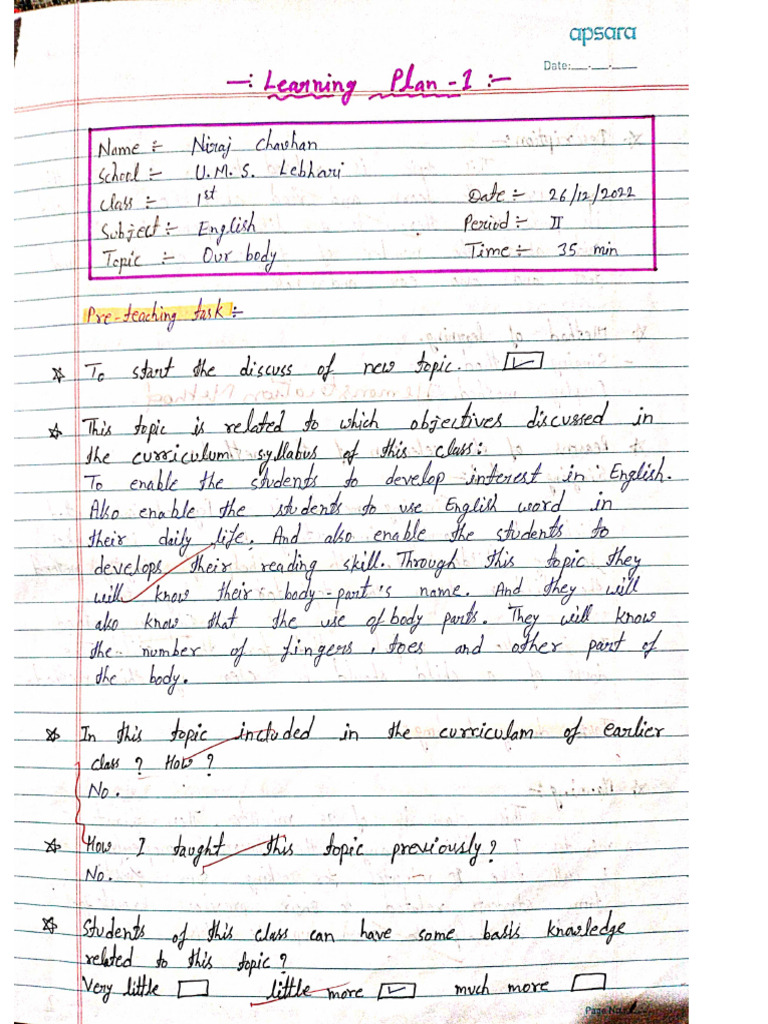 apsara
Date:__.__.__
-: Learning Plan -1 :-
Name :- Niraj Chavhan
School :- U.M.S. Lebhari
Class :- 1st Date :- 26/12/2022
Subject :- English Period :- II
Topic :- Our body Time :- 35 min
Pre-teaching task :-
To start the discuss of new topic.
This topic is related to which objectives discussed in
the curriculum syllabus of this class:
To enable the students to develop interest in English.
Also enable the students to use English word in
their daily life. And also enable the students to
develops their reading skill. Through this topic they
will know their body-part's name. And they will
also know that the use of body parts. They will know
the number of fingers, toes and other part of
the body.
In this topic included in the curriculam of earlier
class ? How ?
No.
How I taught this topic previously?
No.
Students of this class can have some basis knowledge
related to this topic?
Very little little more much more
Page No.